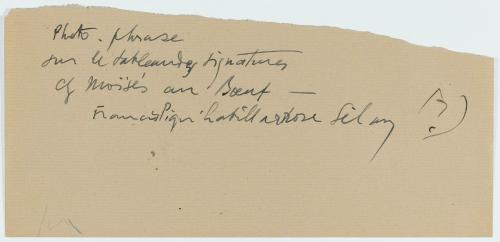 Photo. phrase
sur le tableau des signatures
cf Moïsés au Bœuf —
Francis Piqu' habilla rose Sélavy (?)